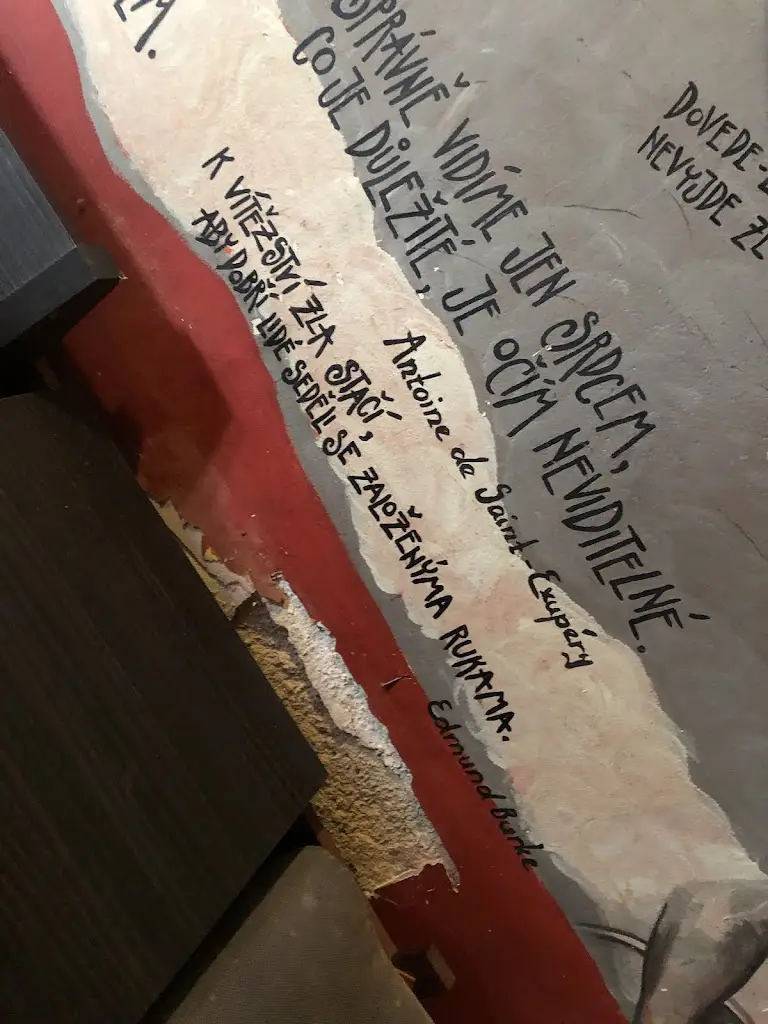 SPRÁVNĚ VIDÍME JEN SRDCEM,
CO JE DŮLEŽITÉ, JE OČÍM NEVIDITELNÉ.
Antoine de Saint-Exupéry
K VÍTĚZSTVÍ ZLA STAČÍ,
ABY DOBŘÍ LIDÉ SEDĚLI SE ZALOŽENÝMA RUKAMA.
Edmund Burke
DOVEDE-
NEVYJDE